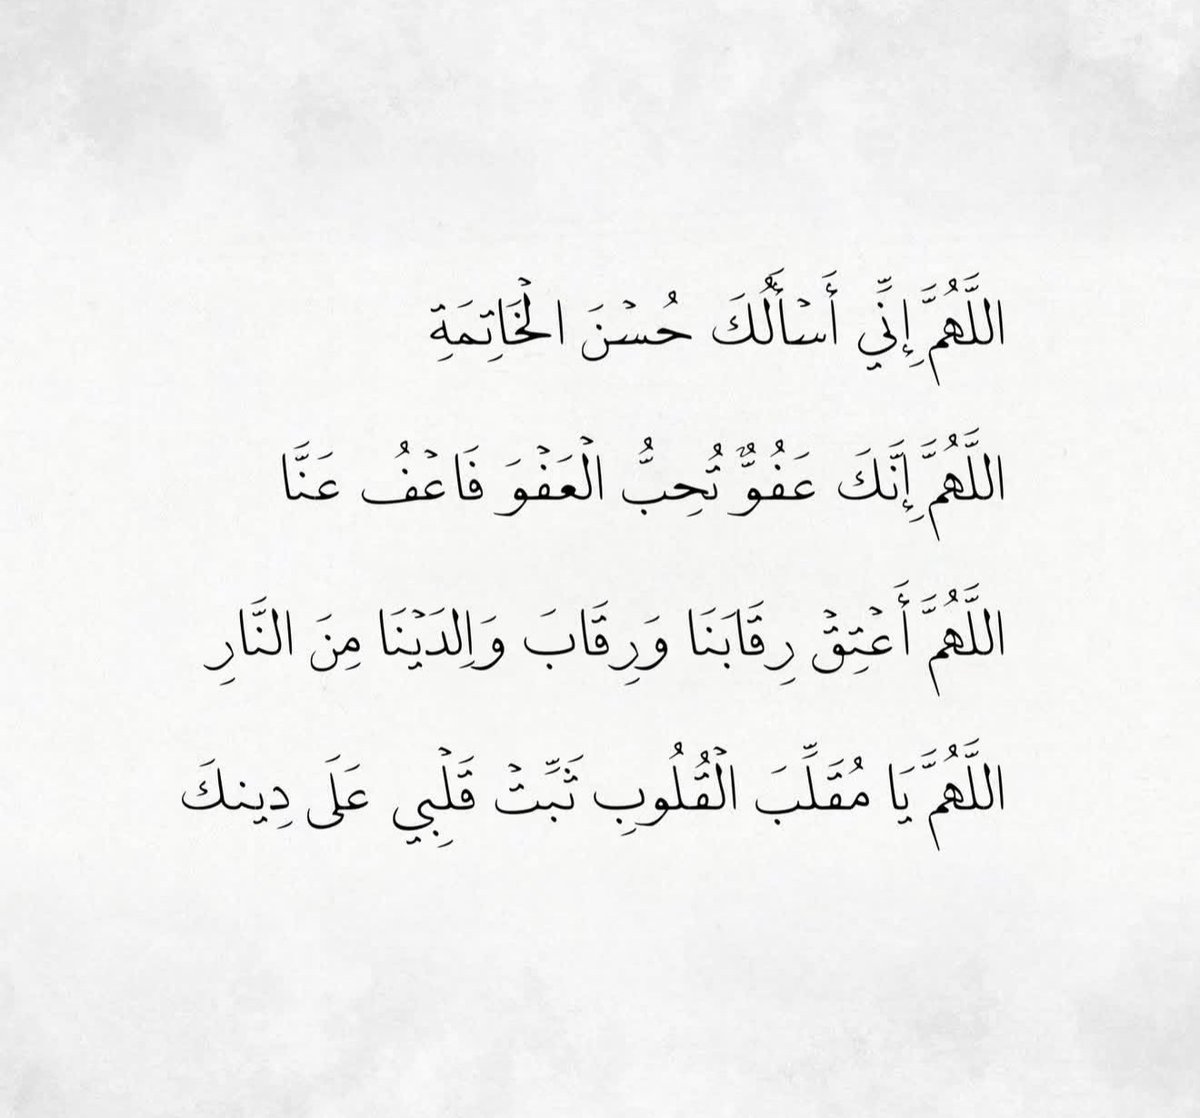 اللَّهُمَّ إِنِّي أَسْأَلُكَ حُسْنَ الْخَاتِمَةِ
اللَّهُمَّ إِنَّكَ عَفُوٌّ تُحِبُّ الْعَفْوَ فَاعْفُ عَنَّا
اللَّهُمَّ أَعْتِقْ رِقَابَنَا وَرِقَابَ وَالِدَيْنَا مِنَ النَّارِ
اللَّهُمَّ يَا مُقَلِّبَ الْقُلُوبِ ثَبِّتْ قَلْبِي عَلَى دِينِكَ